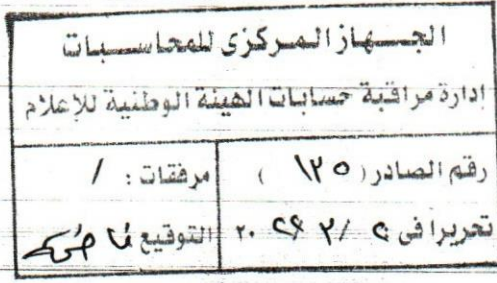 الجهاز المركزى للمحاسبات
إدارة مراقبة حسابات الهيئة الوطنية للإعلام
رقم الصادر ( ١٢٥ ) مرفقات : /
تحريرا فى / ٢ / ٢٠ التوقيع